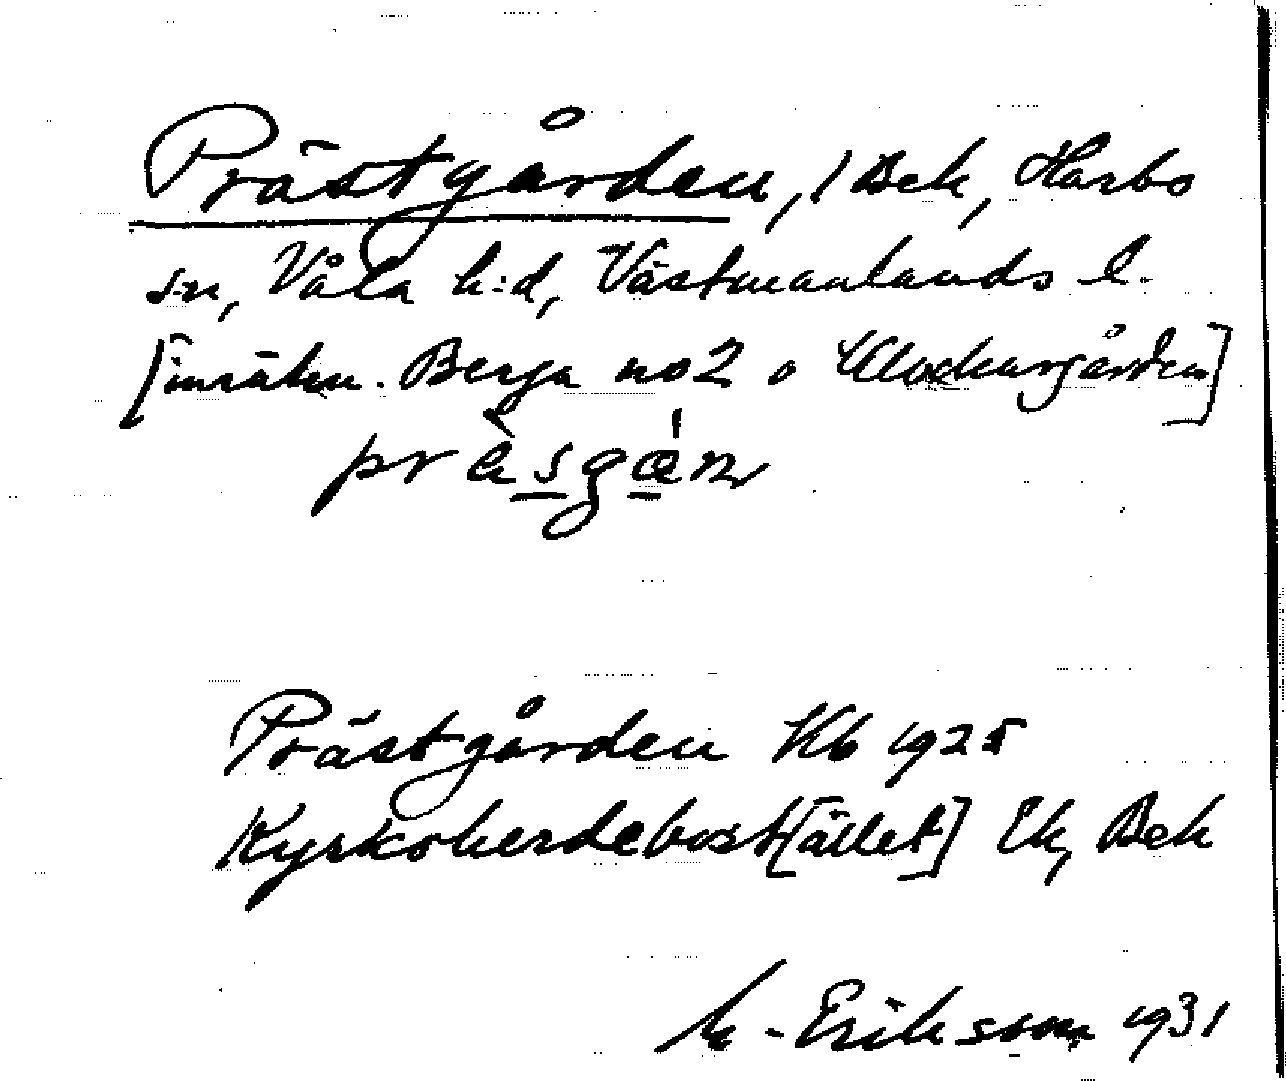 Prästgården, / Bek, Harbo
sn, Våla h:d, Västmanlands l.
[inräkn. Berga no 2 o Klockargården]
prèsgán
Prästgården Kb 1925
Kyrkoherdebost[ället] Ek, Bek
M. Eriksson 1931